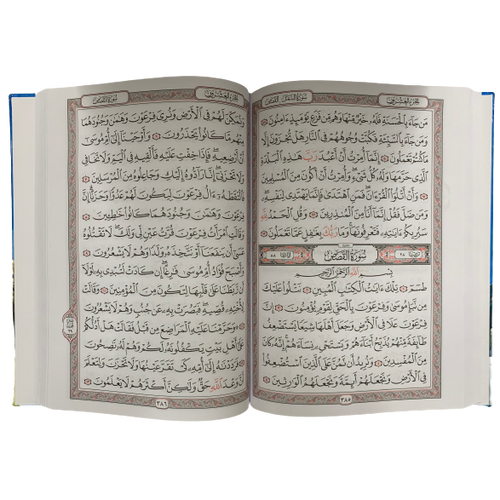 الجزء العشرون سورة النمل القصص
مَن جَآءَ بِٱلْحَسَنَةِ فَلَهُۥ خَيْرٌ مِّنْهَا وَهُم مِّن فَزَعٍ يَوْمَئِذٍ ءَامِنُونَ ٨٩
وَمَن جَآءَ بِٱلسَّيِّئَةِ فَكُبَّتْ وُجُوهُهُمْ فِى ٱلنَّارِ هَلْ تُجْزَوْنَ إِلَّا
مَا كُنتُمْ تَعْمَلُونَ ٩٠ إِنَّمَآ أُمِرْتُ أَنْ أَعْبُدَ رَبَّ هَٰذِهِ ٱلْبَلْدَةِ
ٱلَّذِى حَرَّمَهَا وَلَهُۥ كُلُّ شَىْءٍ وَأُمِرْتُ أَنْ أَكُونَ مِنَ ٱلْمُسْلِمِينَ ٩١
وَأَنْ أَتْلُوَا۟ ٱلْقُرْءَانَ فَمَنِ ٱهْتَدَىٰ فَإِنَّمَا يَهْتَدِى لِنَفْسِهِۦ
وَمَن ضَلَّ فَقُلْ إِنَّمَآ أَنَا۠ مِنَ ٱلْمُنذِرِينَ ٩٢ وَقُلِ ٱلْحَمْدُ لِلَّهِ
سَيُرِيكُمْ ءَايَٰتِهِۦ فَتَعْرِفُونَهَا وَمَا رَبُّكَ بِغَٰفِلٍ عَمَّا تَعْمَلُونَ ٩٣
سُورَةُ القَصَصِ
بِسْمِ ٱللَّهِ ٱلرَّحْمَٰنِ ٱلرَّحِيمِ
طسٓمٓ ١ تِلْكَ ءَايَٰتُ ٱلْكِتَٰبِ ٱلْمُبِينِ ٢ نَتْلُوا۟ عَلَيْكَ
مِن نَّبَإِ مُوسَىٰ وَفِرْعَوْنَ بِٱلْحَقِّ لِقَوْمٍ يُؤْمِنُونَ ٣ إِنَّ
فِرْعَوْنَ عَلَا فِى ٱلْأَرْضِ وَجَعَلَ أَهْلَهَا شِيَعًا يَسْتَضْعِفُ
طَآئِفَةً مِّنْهُمْ يُذَبِّحُ أَبْنَآءَهُمْ وَيَسْتَحْىِۦ نِسَآءَهُمْ إِنَّهُۥ كَانَ
مِنَ ٱلْمُفْسِدِينَ ٤ وَنُرِيدُ أَن نَّمُنَّ عَلَى ٱلَّذِينَ ٱسْتُضْعِفُوا۟
فِى ٱلْأَرْضِ وَنَجْعَلَهُمْ أَئِمَّةً وَنَجْعَلَهُمُ ٱلْوَٰرِثِينَ ٥
٣٨٥
الجزء العشرون سورة القصص
وَنُمَكِّنَ لَهُمْ فِى ٱلْأَرْضِ وَنُرِىَ فِرْعَوْنَ وَهَٰمَٰنَ وَجُنُودَهُمَا
مِنْهُم مَّا كَانُوا۟ يَحْذَرُونَ ٦ وَأَوْحَيْنَآ إِلَىٰٓ أُمِّ مُوسَىٰٓ
أَنْ أَرْضِعِيهِ فَإِذَا خِفْتِ عَلَيْهِ فَأَلْقِيهِ فِى ٱلْيَمِّ وَلَا تَخَافِى
وَلَا تَحْزَنِىٓ إِنَّا رَآدُّوهُ إِلَيْكِ وَجَاعِلُوهُ مِنَ ٱلْمُرْسَلِينَ ٧
فَٱلْتَقَطَهُۥٓ ءَالُ فِرْعَوْنَ لِيَكُونَ لَهُمْ عَدُوًّا وَحَزَنًا إِنَّ
فِرْعَوْنَ وَهَٰمَٰنَ وَجُنُودَهُمَا كَانُوا۟ خَٰطِـِٔينَ ٨
وَقَالَتِ ٱمْرَأَتُ فِرْعَوْنَ قُرَّتُ عَيْنٍ لِّى وَلَكَ لَا تَقْتُلُوهُ
عَسَىٰٓ أَن يَنفَعَنَآ أَوْ نَتَّخِذَهُۥ وَلَدًا وَهُمْ لَا يَشْعُرُونَ ٩
وَأَصْبَحَ فُؤَادُ أُمِّ مُوسَىٰ فَٰرِغًا إِن كَادَتْ لَتُبْدِى بِهِۦ لَوْلَآ
أَن رَّبَطْنَا عَلَىٰ قَلْبِهَا لِتَكُونَ مِنَ ٱلْمُؤْمِنِينَ ١٠ وَقَالَتْ
لِأُخْتِهِۦ قُصِّيهِ فَبَصُرَتْ بِهِۦ عَن جُنُبٍ وَهُمْ لَا يَشْعُرُونَ ١١
وَحَرَّمْنَا عَلَيْهِ ٱلْمَرَاضِعَ مِن قَبْلُ فَقَالَتْ هَلْ أَدُلُّكُمْ
عَلَىٰٓ أَهْلِ بَيْتٍ يَكْفُلُونَهُۥ لَكُمْ وَهُمْ لَهُۥ نَٰصِحُونَ ١٢
فَرَدَدْنَٰهُ إِلَىٰٓ أُمِّهِۦ كَىْ تَقَرَّ عَيْنُهَا وَلَا تَحْزَنَ وَلِتَعْلَمَ
أَنَّ وَعْدَ ٱللَّهِ حَقٌّ وَلَٰكِنَّ أَكْثَرَهُمْ لَا يَعْلَمُونَ ١٣
٣٨٦